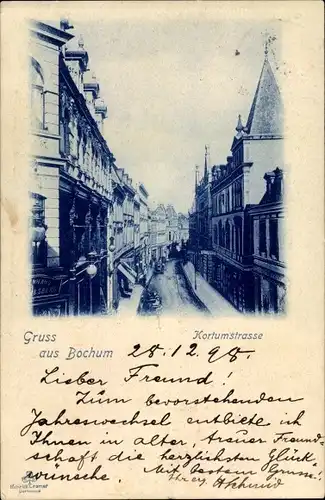 Gruss
aus Bochum
Kortumstrasse
28.12.98.
Lieber Freund!
Zum bevorstehenden
Jahreswechsel entbiete ich
Ihnen in alter, treuer Freund-
schaft die herzlichsten Glück-
wünsche. Mit bestem Gruss!
Schmid